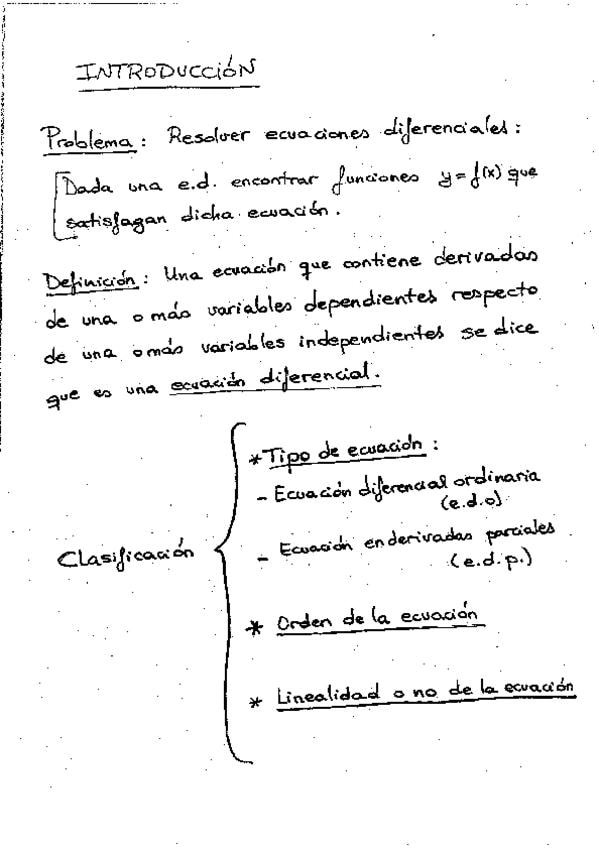 INTRODUCCIÓN
Problema: Resolver ecuaciones diferenciales:
Dada una e.d. encontrar funciones y=f(x) que
satisfagan dicha ecuación.
Definición: Una ecuación que contiene derivadas
de una o más variables dependientes respecto
de una o más variables independientes se dice
que es una ecuación diferencial.
Clasificación
* Tipo de ecuación:
- Ecuación diferencial ordinaria
(e.d.o)
- Ecuación en derivadas parciales
(e.d.p.)
* Orden de la ecuación
* Linealidad o no de la ecuación